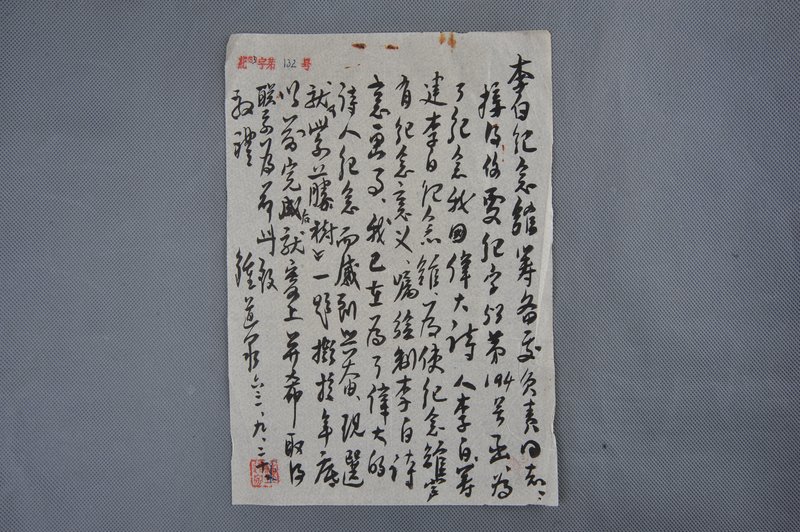 李白纪念馆筹备处负责同志：
接得你处纪字63第194号函，为
了纪念我国伟大诗人李白，筹
建李白纪念馆，为使纪念馆富
有纪念意义，嘱绘制李白诗
意画事，我已在为了伟大的
诗人纪念而感到兴奋，现选
就“紫藤树”一题，拟于年底
以前完成，就后寄上，并希取得
联系为荷，此致
敬礼
钟道泉 六三、九、二十
纪 字第132号